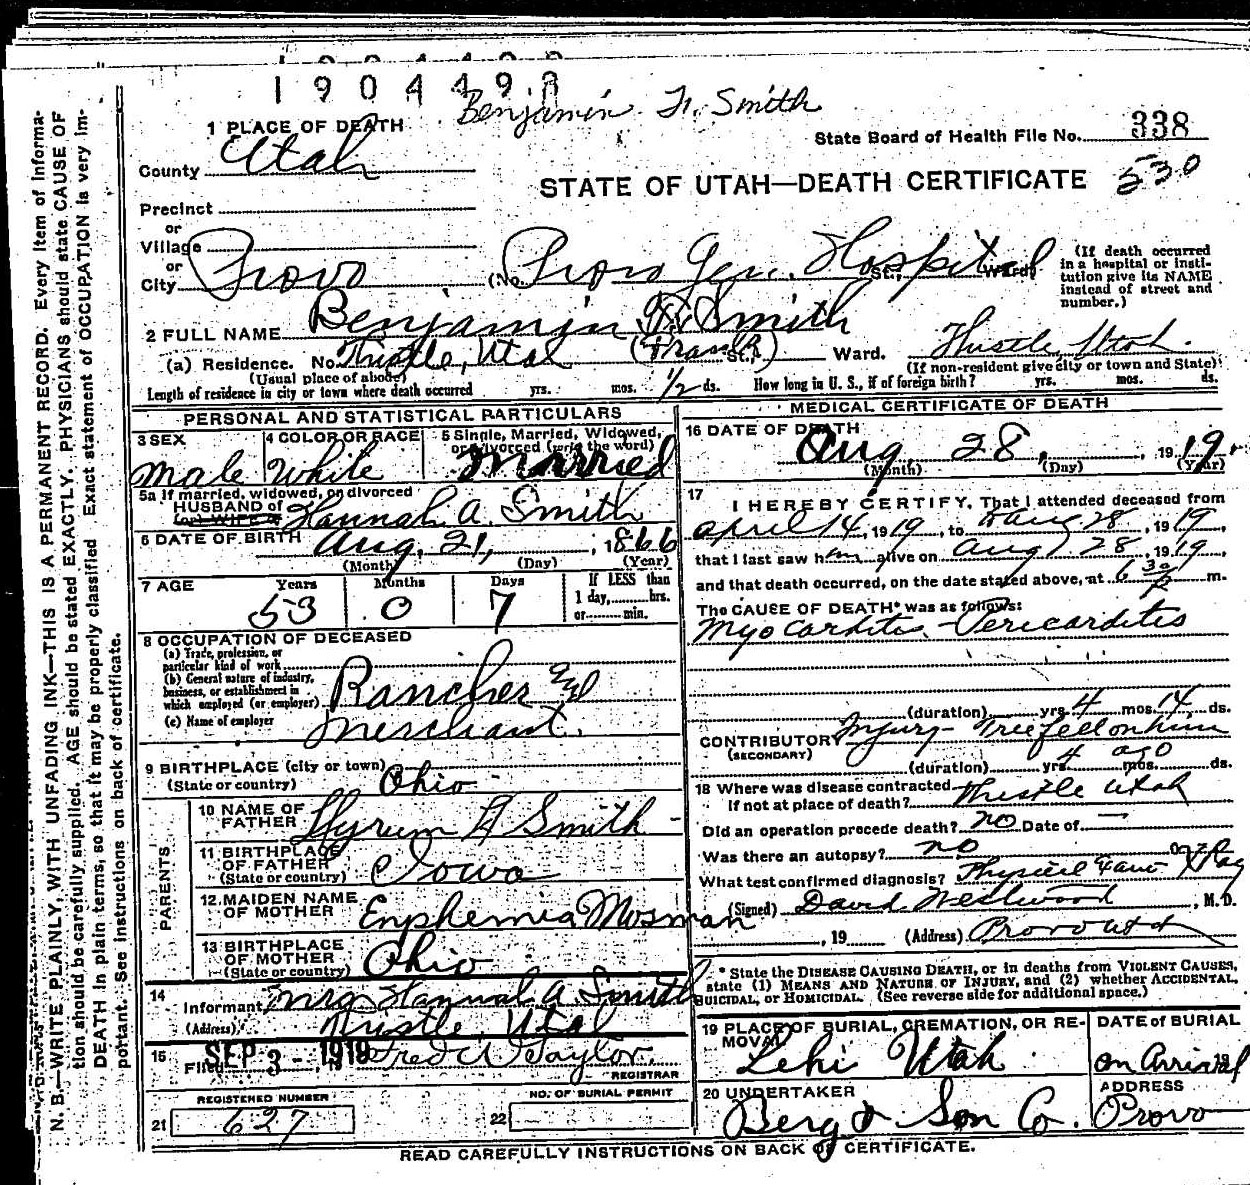 1904498
Benjamin F. Smith
1 PLACE OF DEATH
State Board of Health File No. 338
County Utah
STATE OF UTAH—DEATH CERTIFICATE 530
Precinct
or
Village
or
City Provo (No. Provo Gen. Hospital St., Ward)
(If death occurred in a hospital or institution give its NAME instead of street and number.)
2 FULL NAME Benjamin F. Smith
(a) Residence. No. Thistle, Utah (Frank) St., Ward. Thistle, Utah.
(Usual place of abode) (If non-resident give city or town and State)
Length of residence in city or town where death occurred yrs. mos. 1/2 ds. How long in U. S., if of foreign birth? yrs. mos. ds.
PERSONAL AND STATISTICAL PARTICULARS
3 SEX Male
4 COLOR OR RACE White
5 Single, Married, Widowed, or Divorced (write the word) Married
5a If married, widowed, or divorced
HUSBAND of
(or) WIFE of Hannah A. Smith
6 DATE OF BIRTH Aug. 21, 1866
(Month) (Day) (Year)
7 AGE Years 53 Months 0 Days 7 If LESS than 1 day, hrs. or min.
8 OCCUPATION OF DECEASED
(a) Trade, profession, or particular kind of work
(b) General nature of industry, business, or establishment in which employed (or employer) Rancher
(c) Name of employer Merchant.
9 BIRTHPLACE (city or town)
(State or country) Ohio
PARENTS
10 NAME OF FATHER Hyrum A Smith
11 BIRTHPLACE OF FATHER
(State or country) Iowa
12 MAIDEN NAME OF MOTHER Enphemia Mosman
13 BIRTHPLACE OF MOTHER
(State or country) Ohio
14 Informant Mrs Hannah A. Smith
(Address) Thistle, Utah
15 Filed SEP 3 - 1919 Fred A Taylor
REGISTRAR
REGISTERED NUMBER
21 627
NO. OF BURIAL PERMIT
22
MEDICAL CERTIFICATE OF DEATH
16 DATE OF DEATH Aug 28, 1919.
(Month) (Day) (Year)
17 I HEREBY CERTIFY, That I attended deceased from
April 14, 1919, to Aug 28, 1919,
that I last saw him alive on Aug 28, 1919
and that death occurred, on the date stated above, at 6 30 P m.
The CAUSE OF DEATH* was as follows:
Myocarditis - Pericarditis
(duration) yrs. 4 mos. 14 ds.
CONTRIBUTORY Injury - Tree fell on him
(SECONDARY) 4 ago
(duration) yrs. mos. ds.
18 Where was disease contracted
if not at place of death? Thistle Utah
Did an operation precede death? no Date of —
Was there an autopsy? no
What test confirmed diagnosis? Physical Exam X Ray
(Signed) David Westwood, M. D.
, 19 (Address) Provo Utah
* State the DISEASE CAUSING DEATH, or in deaths from VIOLENT CAUSES, state (1) MEANS AND NATURE OF INJURY, and (2) whether ACCIDENTAL, SUICIDAL, or HOMICIDAL. (See reverse side for additional space.)
19 PLACE OF BURIAL, CREMATION, OR REMOVAL Lehi Utah
DATE of BURIAL on Arrival 19
20 UNDERTAKER Berg & Son Co.
ADDRESS Provo
READ CAREFULLY INSTRUCTIONS ON BACK OF CERTIFICATE.
N. B.—WRITE PLAINLY, WITH UNFADING INK—THIS IS A PERMANENT RECORD. Every item of information should be carefully supplied. AGE should be stated EXACTLY. PHYSICIANS should state CAUSE OF DEATH in plain terms, so that it may be properly classified. Exact statement of OCCUPATION is very important. See instructions on back of certificate.